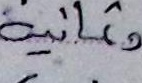 وثمانية